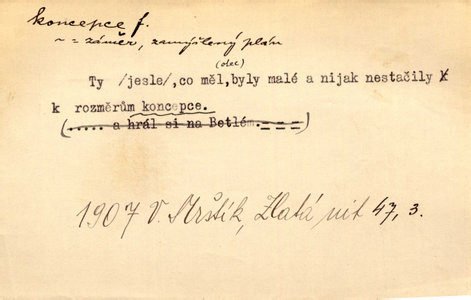 koncepce f.
~ = záměr, zamyšlený plán
(otec)
Ty /jesle/,co měl,byly malé a nijak nestačily k
k rozměrům koncepce.
(..... a hrál si na Betlém.---)
1907 V. Mrštík, Zlatá nit 47, 3.